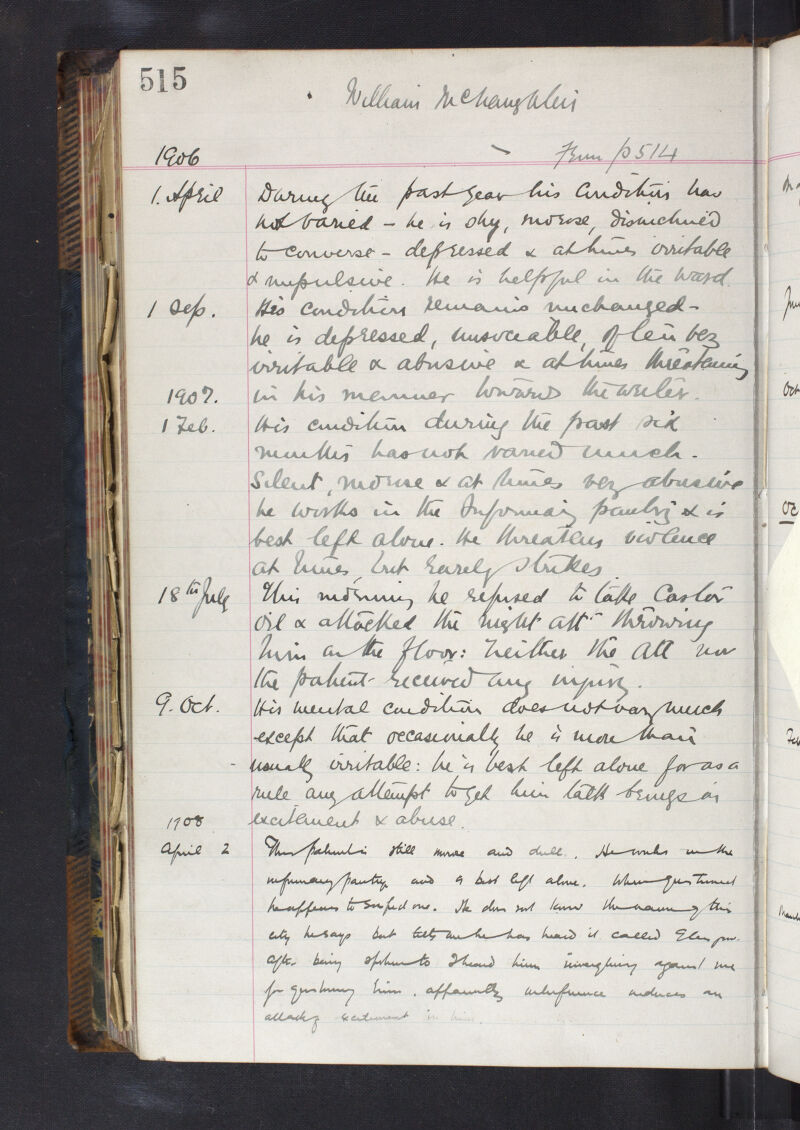 515
William McLaughlin
1906
From p 514
1. April During the past year his condition has
not varied - he is shy, morose, disinclined
to converse - depressed & at times irritable
& impulsive. He is helpful in the ward.
1 Sep. His condition remains unchanged -
he is depressed, unsociable, often very
irritable & abusive & at times threatening
1907. in his manner towards the writer.
1 Feb. His condition during the past six
months has not varied much.
Silent, morose & at times very abusive
he works in the Infirmary pantry & is
best left alone. He threatens violence
at times, but rarely strikes
18th July This morning he refused to take Castor
Oil & attacked the night attt throwing
him on the floor: neither the att nor
the patient received any injury.
9. Oct. His mental condition does not vary much
except that occasionally he is more than
usually irritable: he is best left alone for as a
rule any attempt to get him talk brings on
1908 excitement & abuse.
April 2 This patient is still morose and dull. He works in the
infirmary pantry and is best left alone. When questioned
he appears to suspect one. He does not know the name of this
city he says but tells me he has heard it called Glasgow.
After being spoken to I heard him inveighing against me
for questioning him. Apparently interference induces an
attack of excitement in him.